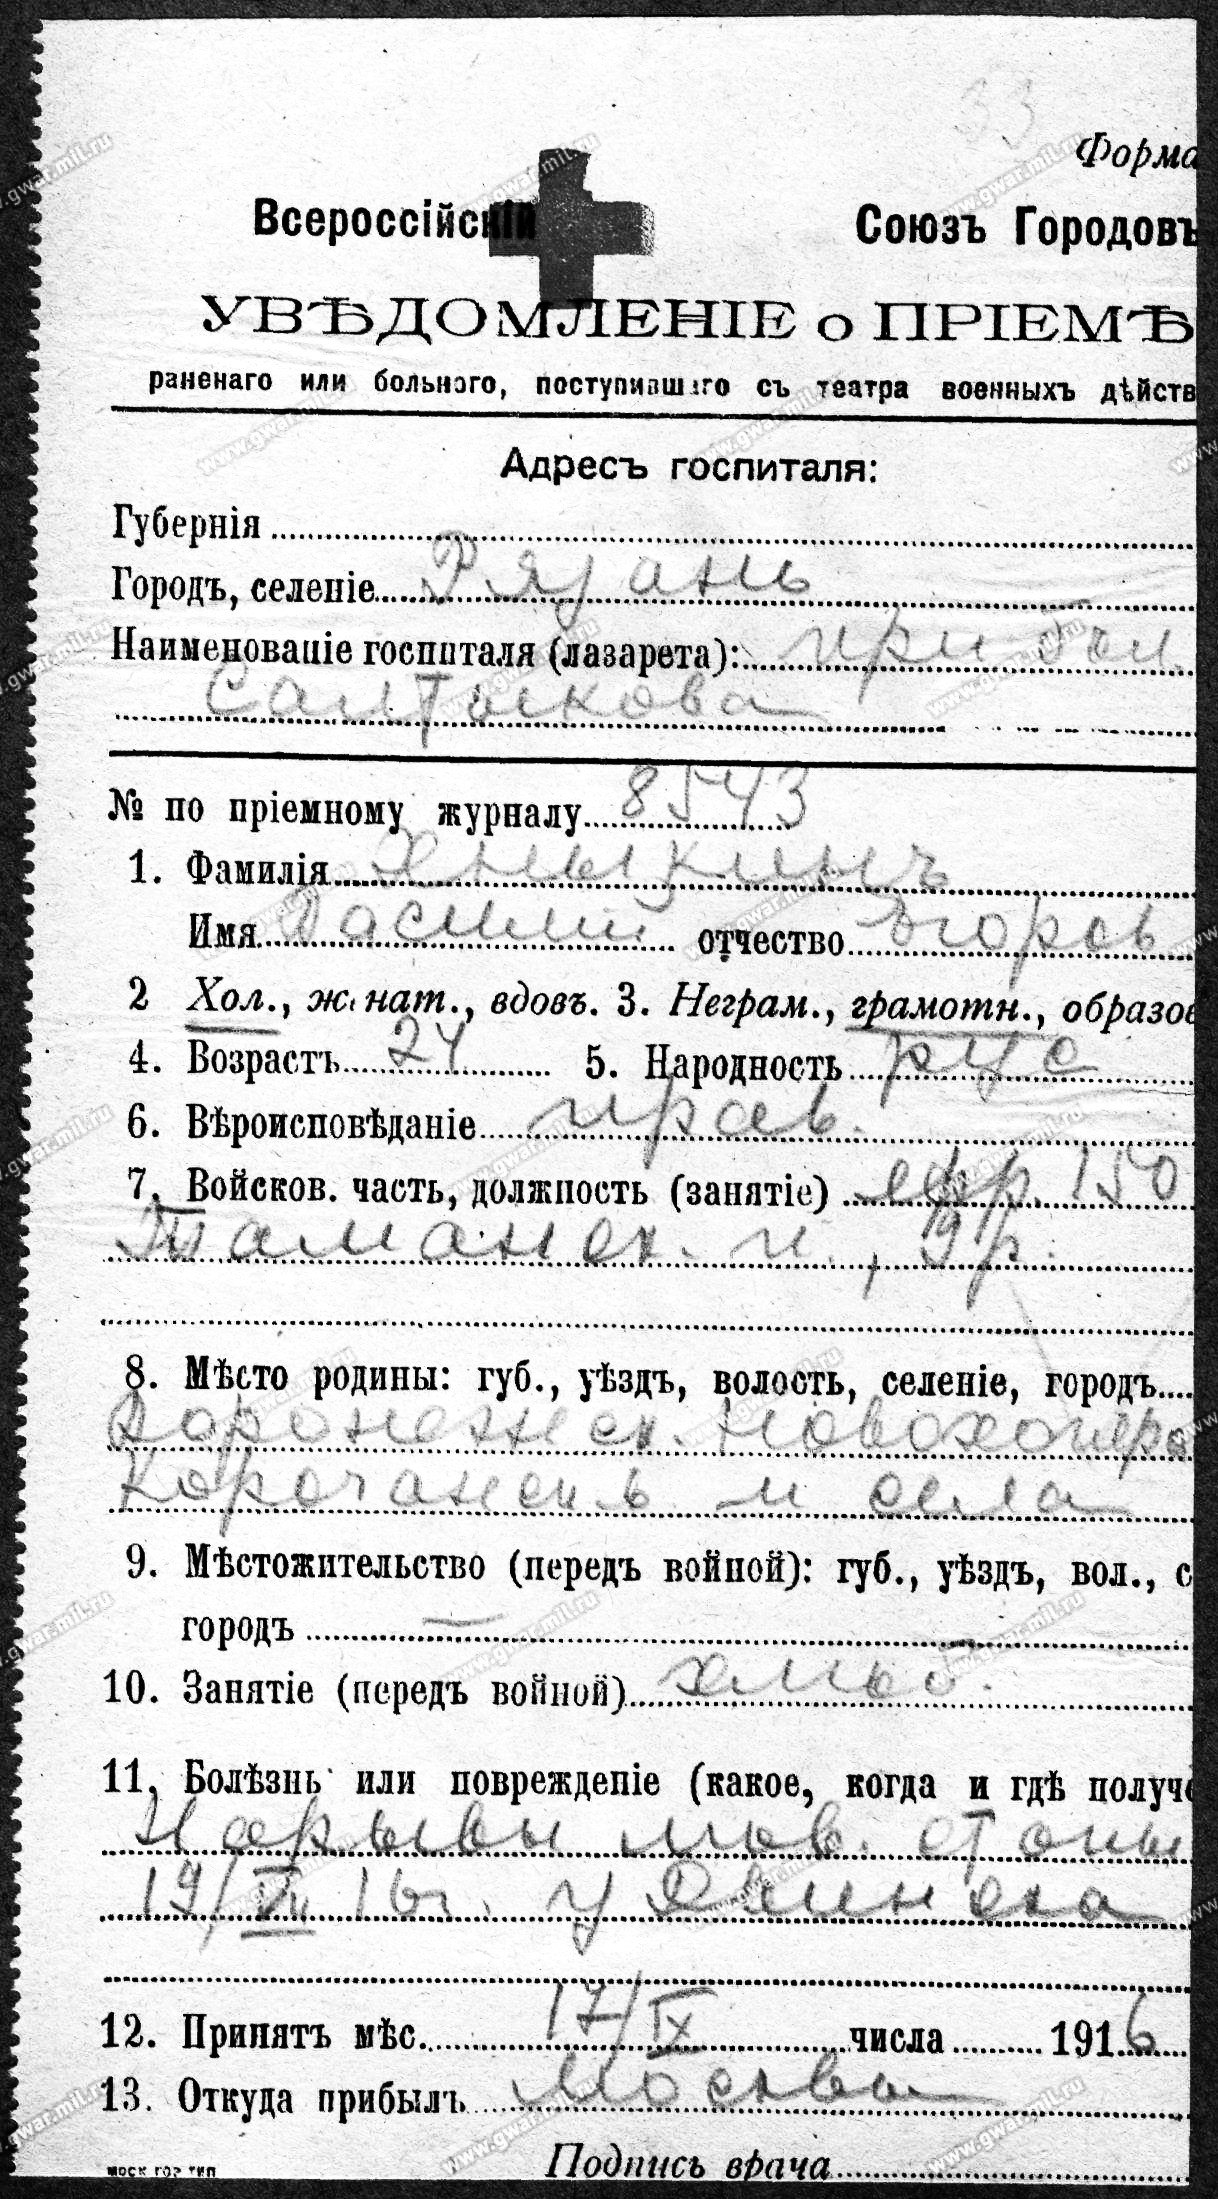 33
Форма
Всероссійскій Союзъ Городовъ
УВѢДОМЛЕНІЕ о ПРІЕМѢ
раненаго или больного, поступившаго съ театра военныхъ дѣйств
Адресъ госпиталя:
Губернія
Городъ, селеніе Рязань
Наименованіе госпиталя (лазарета): при бол.
Салтыкова
№ по пріемному журналу 8543
1. Фамилія Хныкинъ
Имя Василій отчество Егоров
2 Хол., женат., вдовъ. 3. Неграм., грамотн., образов
4. Возрастъ 24 5. Народность рус
6. Вѣроисповѣданіе прав.
7. Войсков. часть, должность (занятіе) ефр. 150
Таманск. п., 9 р.
8. Мѣсто родины: губ., уѣздъ, волость, селеніе, городъ
Воронежск. Новохопер
и села
9. Мѣстожительство (передъ войной): губ., уѣздъ, вол., с
городъ —
10. Занятіе (передъ войной) хлѣб.
11. Болѣзнь или поврежденіе (какое, когда и гдѣ получе
Нарывы лѣв. стопы
19/VII 16 г. у Двинска
12. Принятъ мѣс. 17/IX числа 1916
13. Откуда прибылъ Москва
Подпись врача
МОСК ГОР ТИП
www.gwar.mil.ru